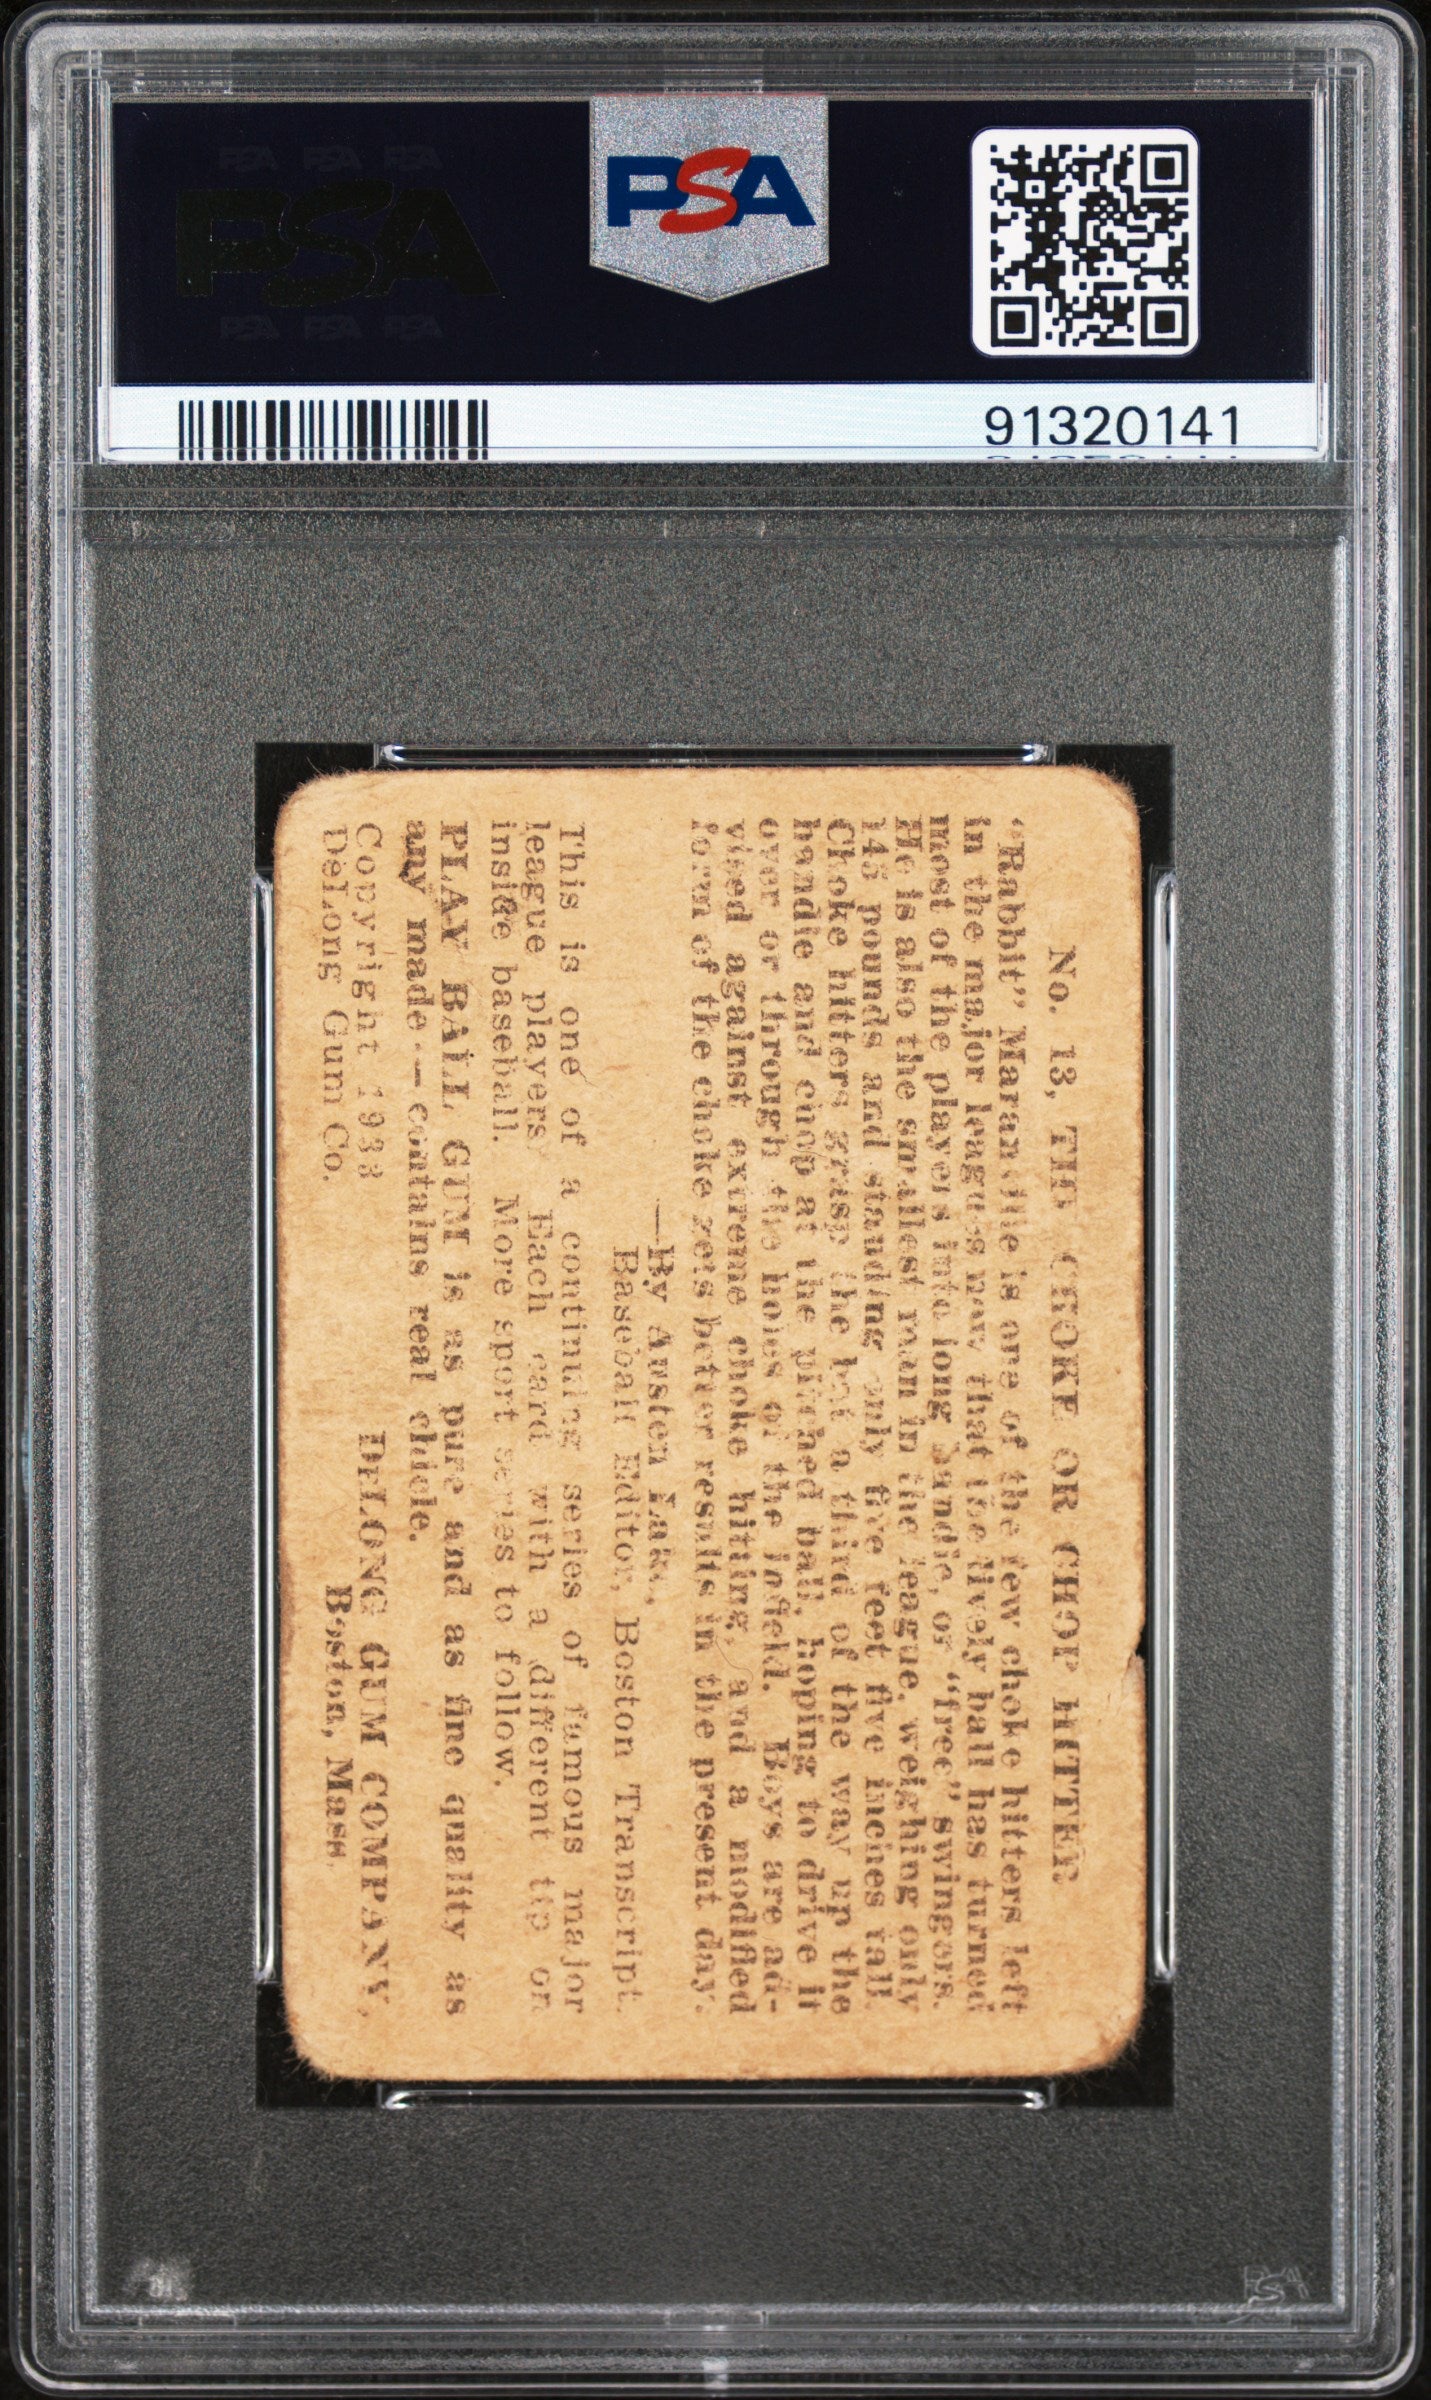 PSA PSA PSA
PSA
PSA PSA PSA
PSA
91320141
No. 13, THE CHOKE OR CHOP HITTER
"Rabbit" Maranville is one of the few choke hitters left
in the major leagues now that the lively ball has turned
most of the players into long handle, or "free" swingers.
He is also the smallest man in the league, weighing only
145 pounds and standing only five feet five inches tall.
Choke hitters grasp the bat a third of the way up the
handle and chop at the pitched ball, hoping to drive it
over or through the holes of the infield. Boys are ad-
vised against extreme choke hitting, and a modified
form of the choke gets better results in the present day.
—By Austen Lake,
Baseball Editor, Boston Transcript.
This is one of a continuing series of famous major
league players. Each card with a different tip on
inside baseball. More sport series to follow.
PLAY BALL GUM is as pure and as fine quality as
any made — contains real chicle.
Copyright 1933
DeLong Gum Co.
DELONG GUM COMPANY,
Boston, Mass.
PSA